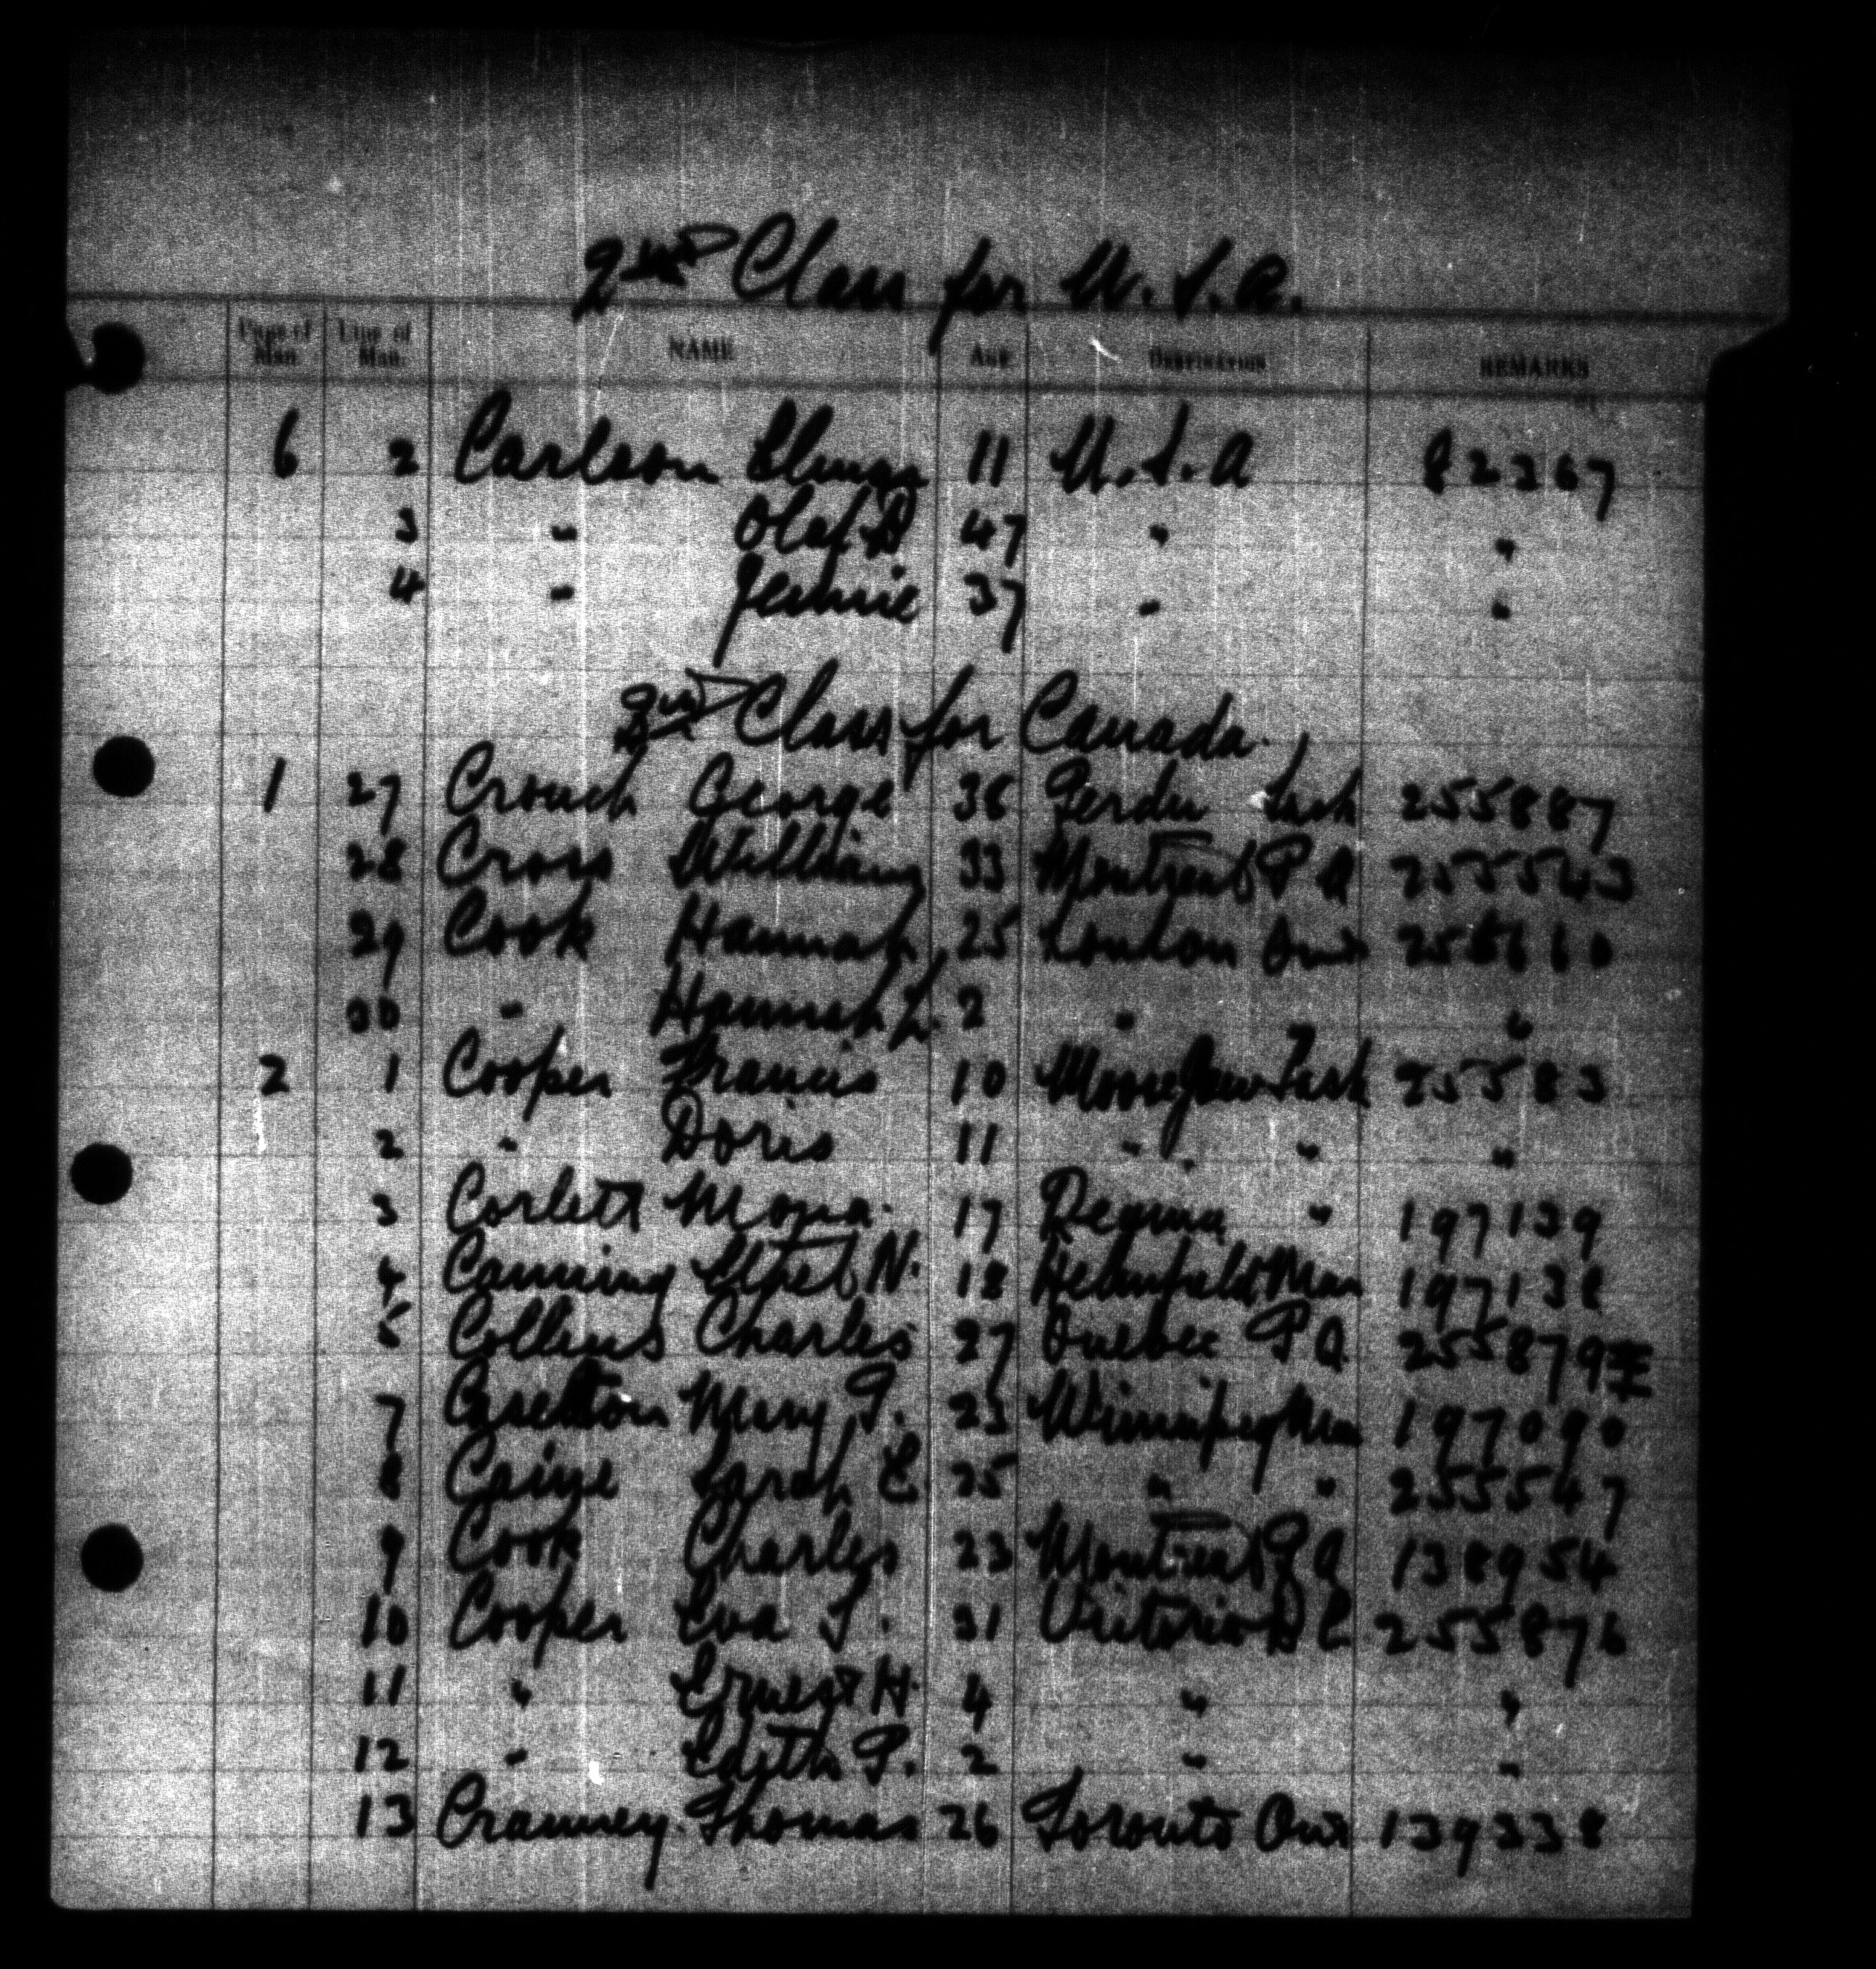 2nd Class for U.S.A.
Page of Man. Line of Man. NAME AGE DESTINATION REMARKS
6 2 Carlson 11 U.S.A 82267
3 " Olaf B 47 " "
4 " Jennie 37 " "
2nd Class for Canada.
1 27 Crouch George 38 Sask 255887
28 Cross William 33 Montreal P Q 255543
29 Cook Hannah 25 London Ont
30 " Hannah L. 2 " "
2 1 Cooper Francis 10 Moose Jaw Sask 25583
2 " Doris 11 " " "
3 Corlett Mona. 17 Regina " 197139
4 Canning Ethel N. 18 Man 197138
5 Collins Charles 27 Quebec P Q. 255879
7 Carleton Mary J. 23 Winnipeg Man 197090
8 Caine Sarah E 25 " " 255547
9 Cook Charles 23 Montreal P Q 138954
10 Cooper Eva J. 31 Victoria B C 255876
11 " Ernest H. 4 " "
12 " Edith P. 2 " "
13 Cranney Thomas 26 Toronto Ont 139338